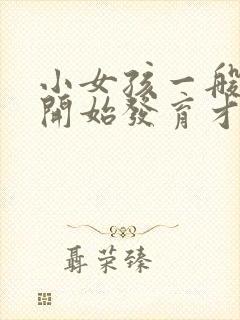 小女孩一般
開始發育才
聶荣臻